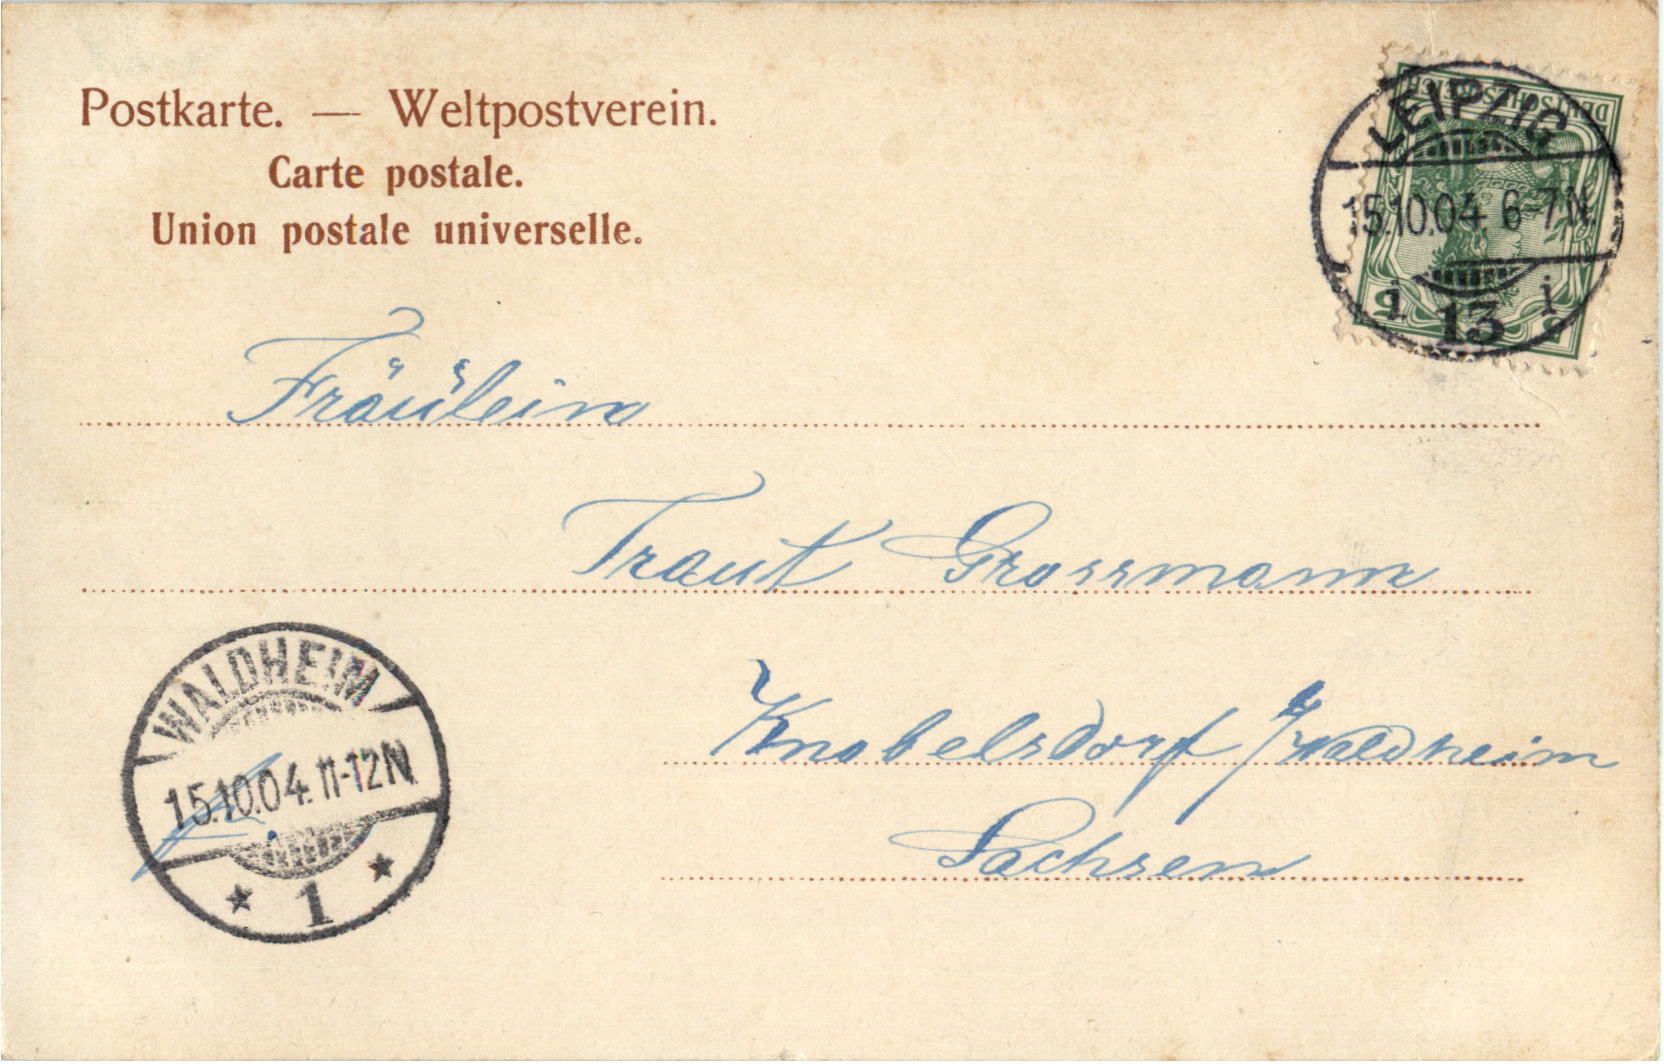 Postkarte. — Weltpostverein.
Carte postale.
Union postale universelle.
DEUTSCHES REICH
5 5
LEIPZIG
15.10.04. 6-7N.
i 13 i
Fräulein
Traut Grossmann
Knobelsdorf / Waldheim
Sachsen
WALDHEIM
15.10.04. 11-12N
* 1 *